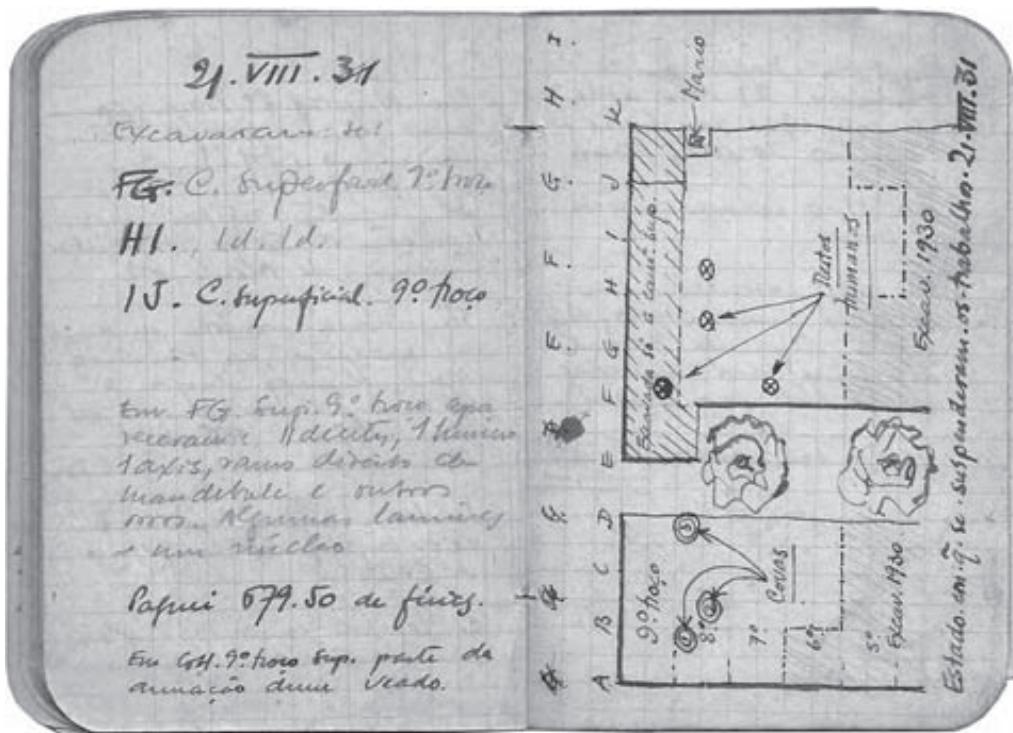 21.VIII.31
Excavaram-se:
FG. C. Superficial 9º troço
HI. Id. Id.
IJ. C. Superficial. 9º troço
Em FG. Sup. 9º troço apa
receram: 11 dentes, 1 húmero
1 axis, ramo direito de
mandíbula e outros
ossos. Algumas lamines
e um núcleo
Paguei 679.50 de férias.
Em GH. 9º troço Sup. parte da
armação dum veado.
I.
H.
G.
F.
E.
K
J
I
H
G
F
E
D
C
B
A
Mario
Escavada só a cam.ª sup.
Restos
humanos
Excav. 1930
9º troço
8º
7º
6º
5º
Excav. 1930
Covas
1
2
3
Estado em q̃. se suspenderam os trabalhos. 21.VIII.31